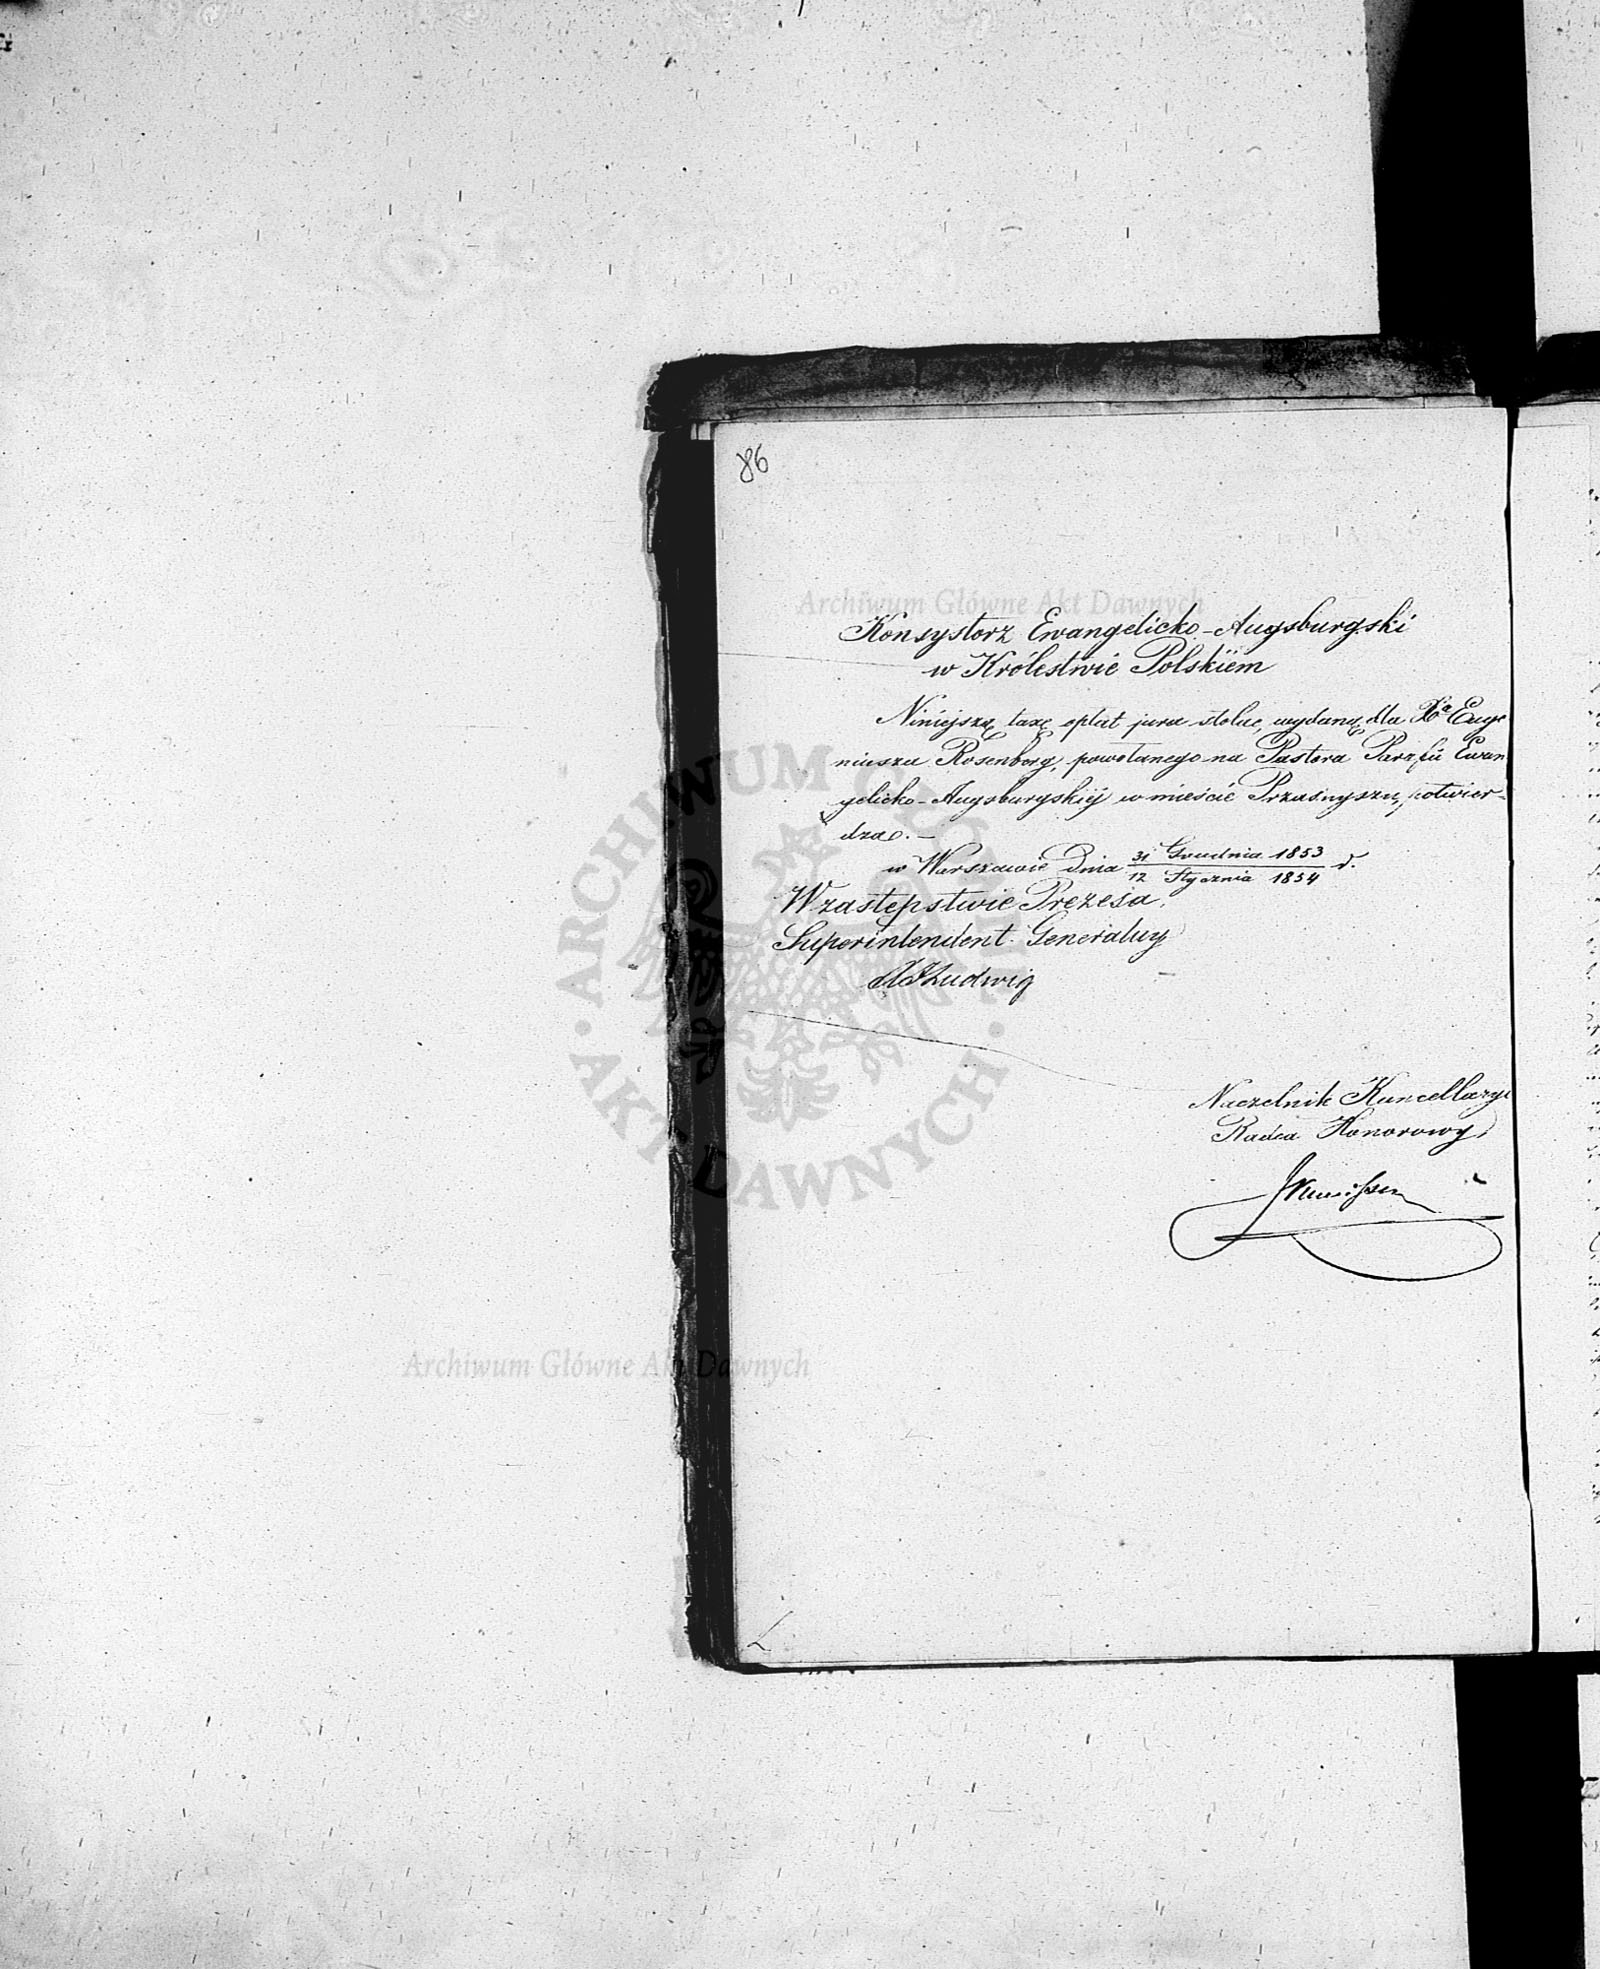 86
Archiwum Główne Akt Dawnych
Konsystorz Ewangelicko-Augsburgski
w Królestwie Polskiem
Niniejszą taxę opłat jura stolae, wydaną dla Xa Euge
niusza Rosenberg, powołanego na Pastora Parafii Ewan
gelicko-Augsburgskiéj w mieście Przasnyszu, potwier-
dza. -
w Warszawie Dnia 31 Grudnia 1853 / 12 Stycznia 1854 r.
W zastępstwie Prezesa,
Superintendent Generalny
Ludwig
Naczelnik Kancellaryi
Radca Honorowy,
ARCHIWUM GŁÓWNE AKT DAWNYCH
Archiwum Główne Akt Dawnych